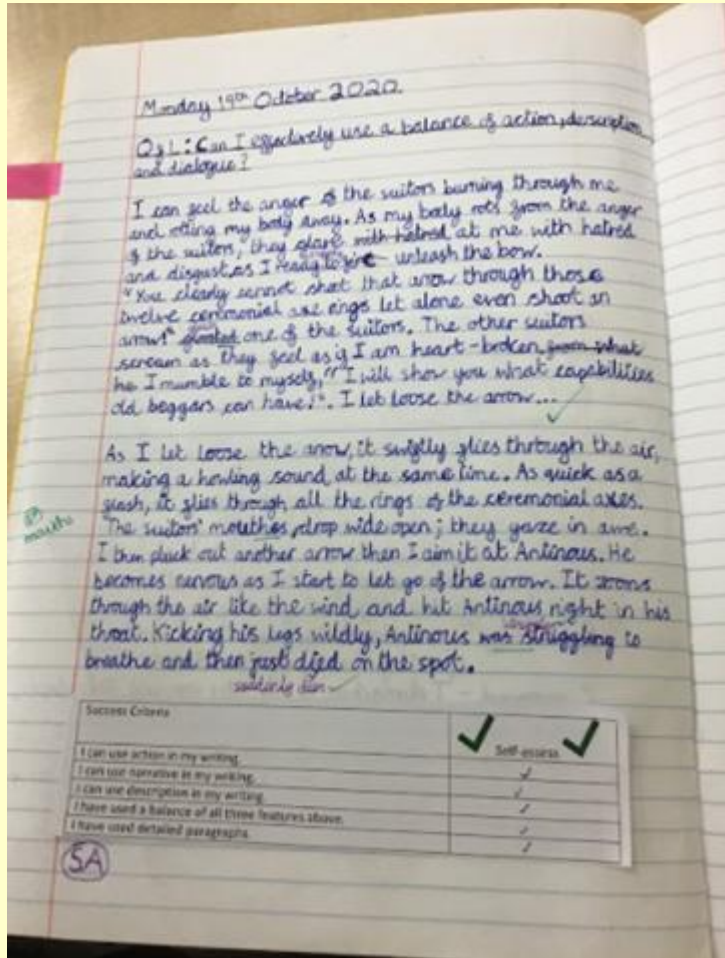 Monday 19th October 2020.
QfL: Can I effectively use a balance of action, description
and dialogue?
I can feel the anger of the suitors burning through me
and rotting my body away. As my body rots from the anger
of the suitors, they glare with hatred at me with hatred
and disgust as I ready to fire unleash the bow.
"You clearly cannot shoot that arrow through those
twelve ceremonial axe rings let alone even shoot an
arrow" gloated one of the suitors. The other suitors
scream as they feel as if I am heart-broken from what
he I mumble to myself, "I will show you what capabilities
old beggars can have!". I let loose the arrow...
As I let loose the arrow, it swiftly flies through the air,
making a howling sound at the same time. As quick as a
flash, it flies through all the rings of the ceremonial axes.
sp
mouths
The suitors' mouthes drop wide open; they gaze in awe.
I then pluck out another arrow then I aim it at Antinous. He
becomes nervous as I start to let go of the arrow. It zooms
through the air like the wind and hit Antinous right in his
throat. Kicking his legs wildly, Antinous was struggling to
breathe and then just died on the spot.
suddenly
Success Criteria
Self-assess
I can use action in my writing.
I can use narrative in my writing.
I can use description in my writing.
I have used a balance of all three features above.
I have used detailed paragraphs.
SA